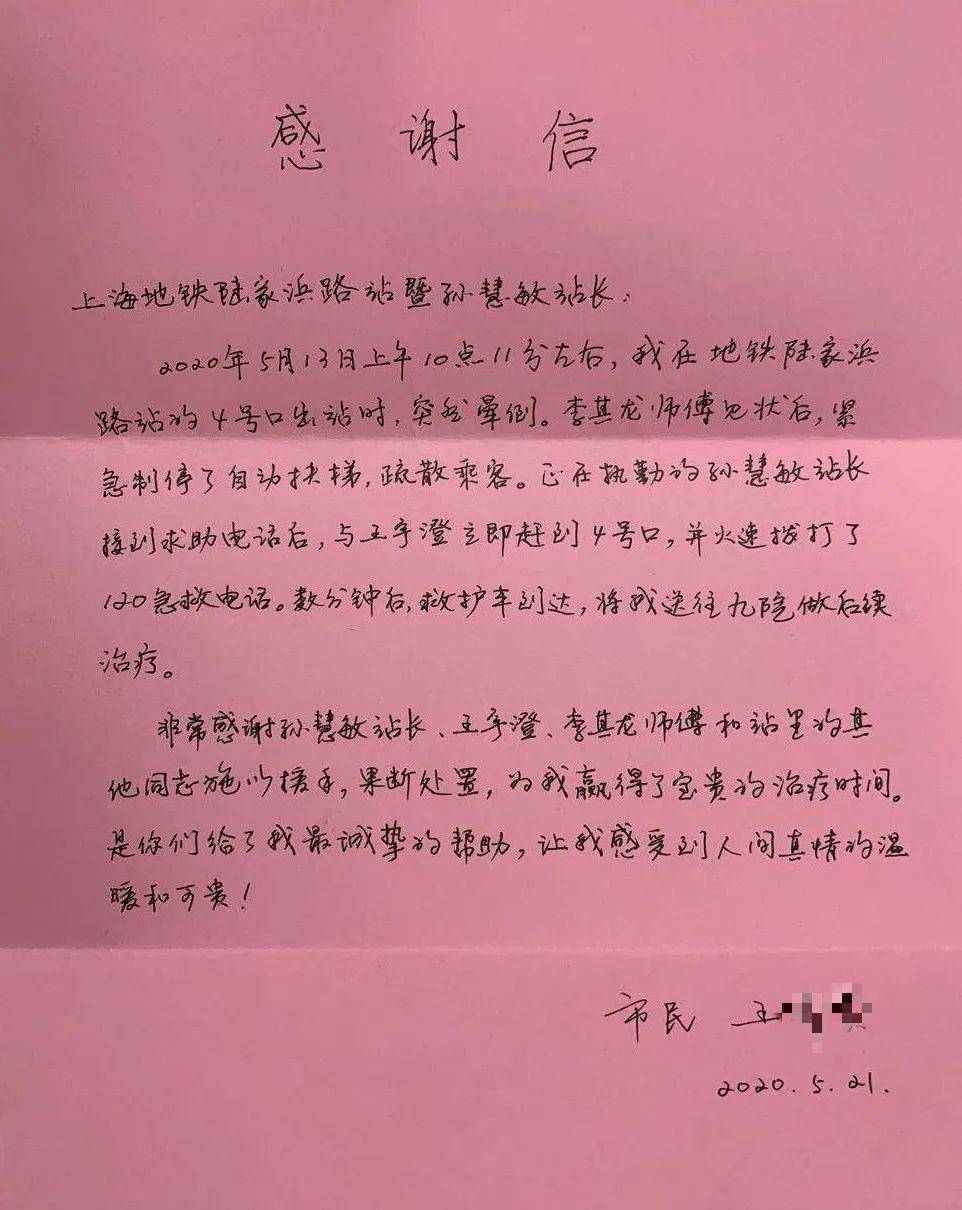 感谢信
上海地铁陆家浜路站暨孙慧敏站长:
2020年5月13日上午10点11分左右,我在地铁陆家浜
路站的4号口出站时,突然晕倒。李其龙师傅见状后,紧
急制停了自动扶梯,疏散乘客。正在执勤的孙慧敏站长
接到求助电话后,与王宇澄立即赶到4号口,并火速拨打了
120急救电话。数分钟后,救护车到达,将我送往九院做后续
治疗。
非常感谢孙慧敏站长、王宇澄、李其龙师傅和站里的其
他同志施以援手,果断处置,为我赢得了宝贵的治疗时间。
是你们给了我最诚挚的帮助,让我感受到人间真情的温
暖和可贵!
市民 王
2020.5.21.